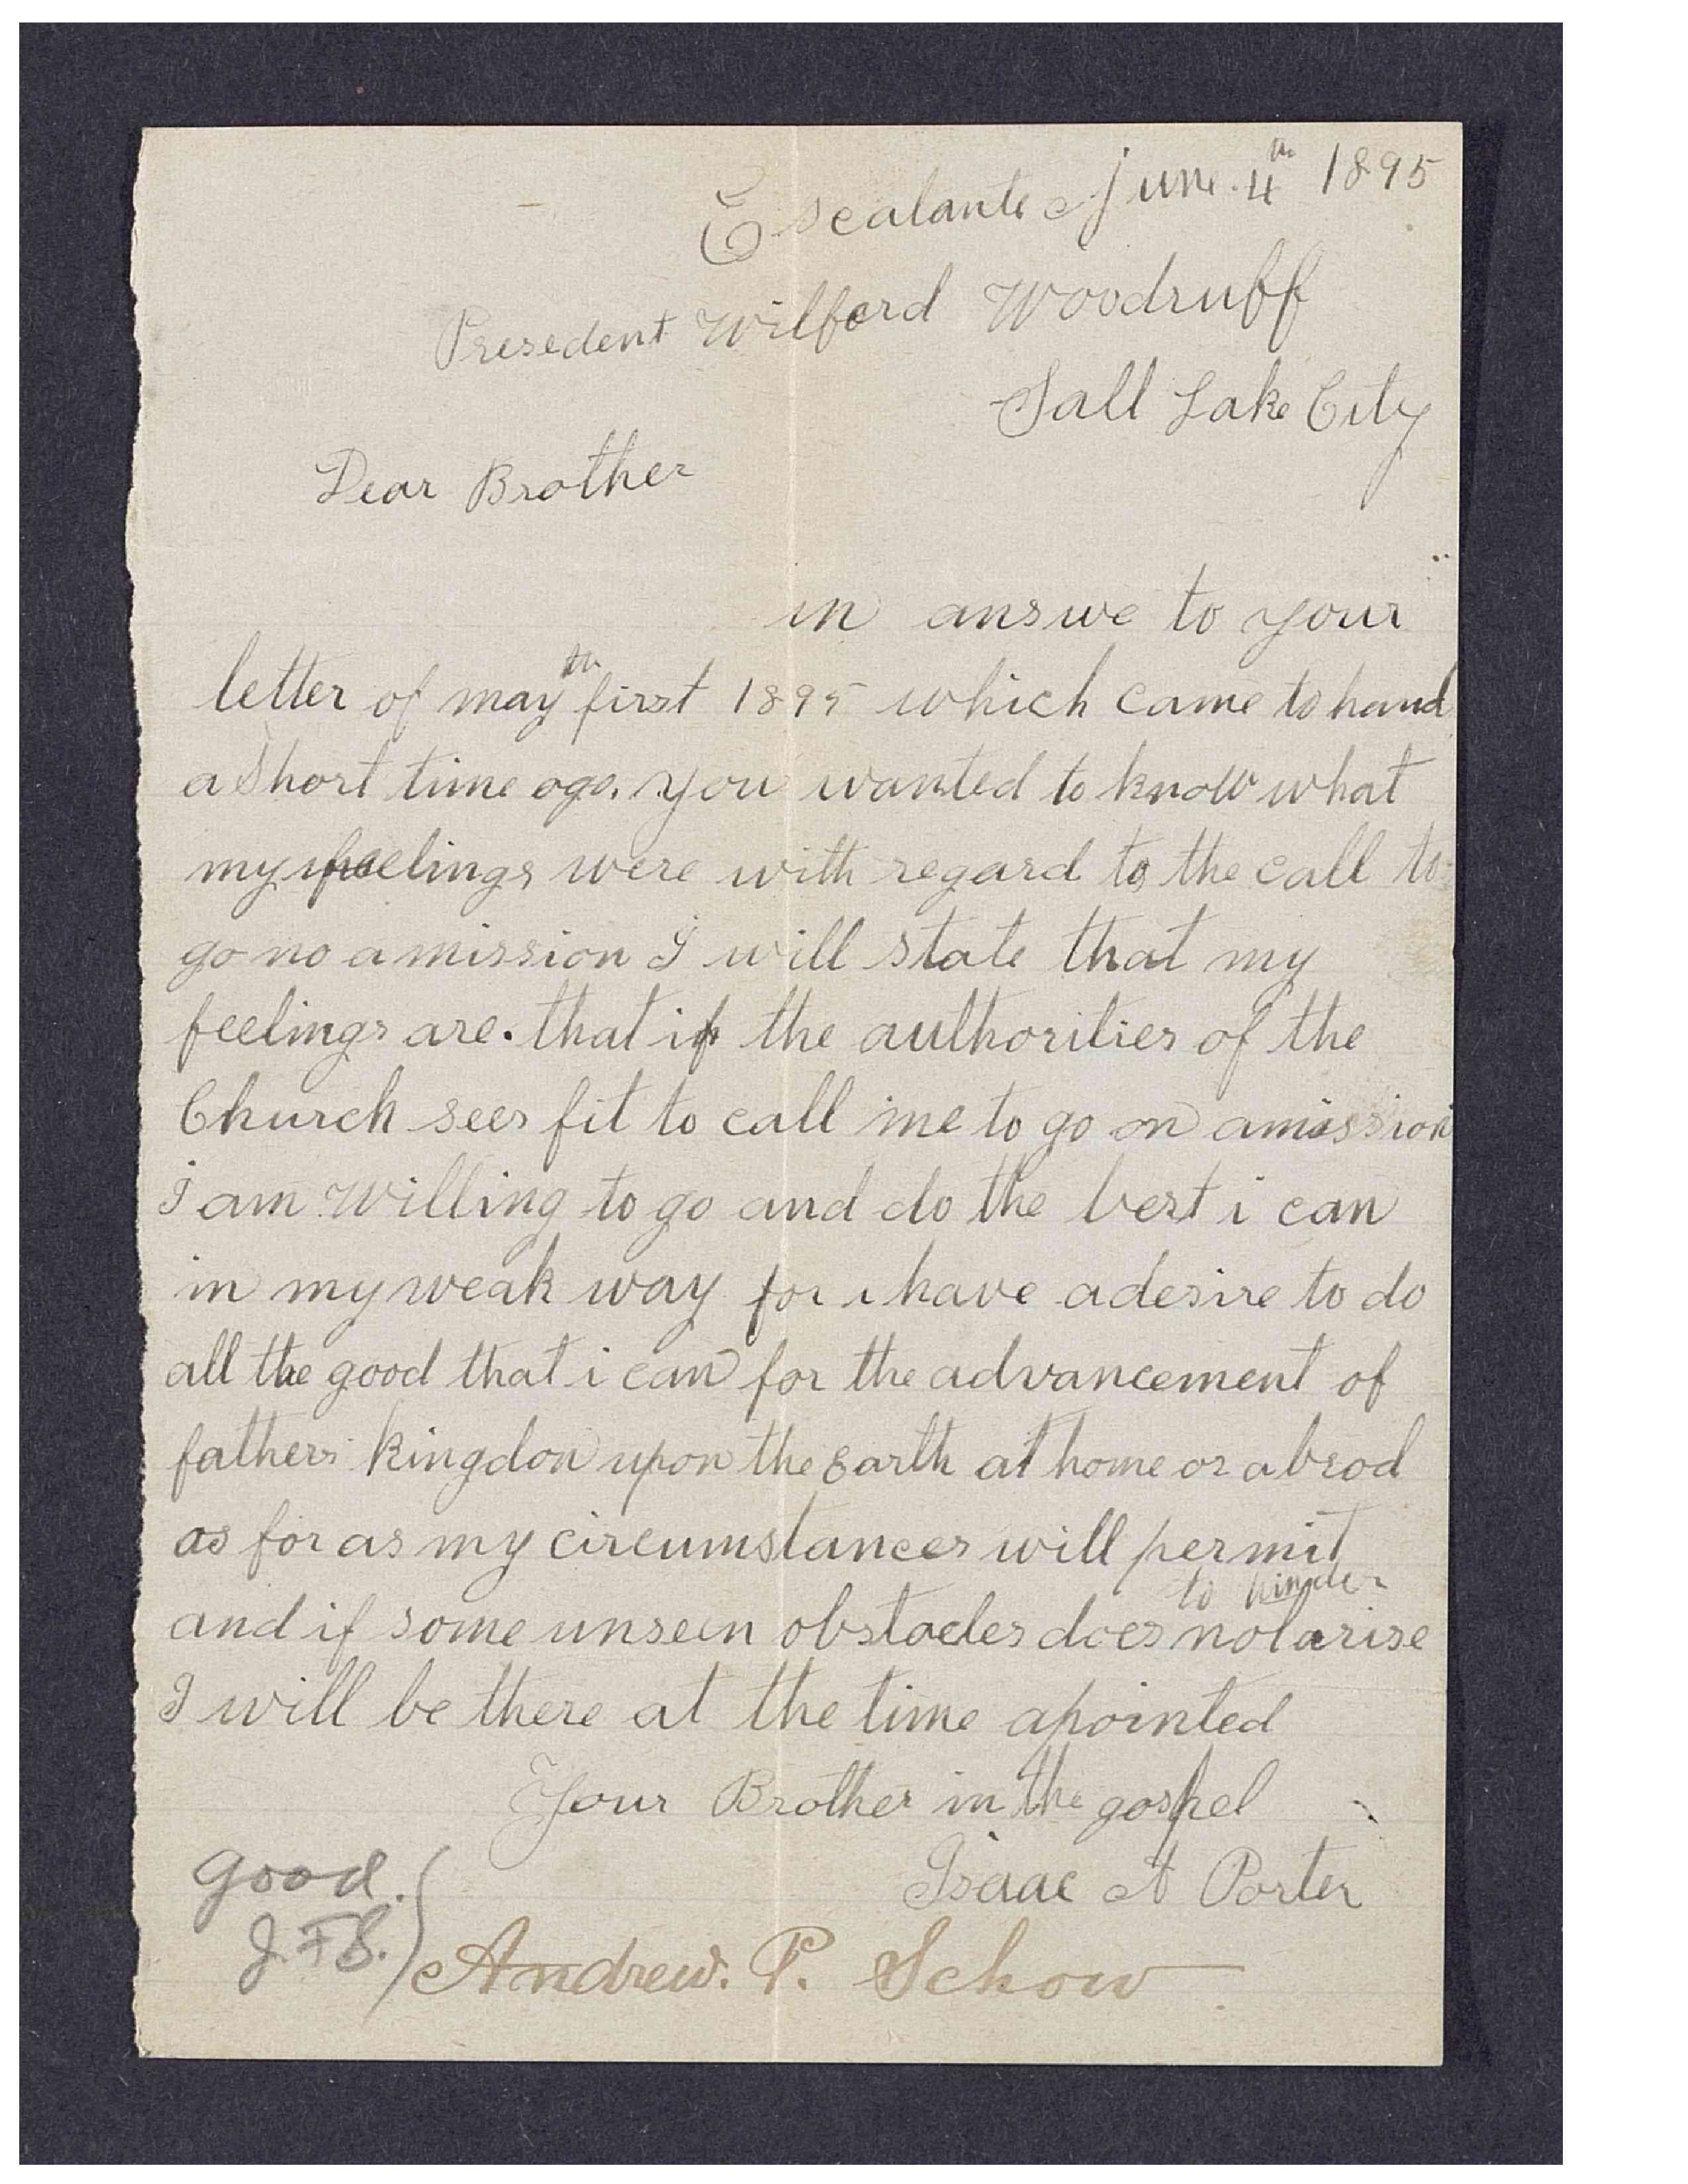 Escalante June. 4th 1895
Presedent Wilford Woodruff
Sall Lake City
Dear Brother
in answe to your
letter of may th first 1895 which came to hand
a Short time ago. you wanted to know what
my feelings were with regard to the call to
go no a mission I will state that my
feelings are. that if the authorities of the
Church sees fit to call me to go on a mission
I am willing to go and do the best i can
in my weak way for i have a desire to do
all the good that i can for the advancement of
fathers kingdon upon the Earth at home or abrod
as for as my circumstances will permit
to hinder
and if some unseen obstacles does not arise
I will be there at the time apointed
Your Brother in the gospel
Isaac A Porter
good.
J.F.S.
Andrew. P. Schow